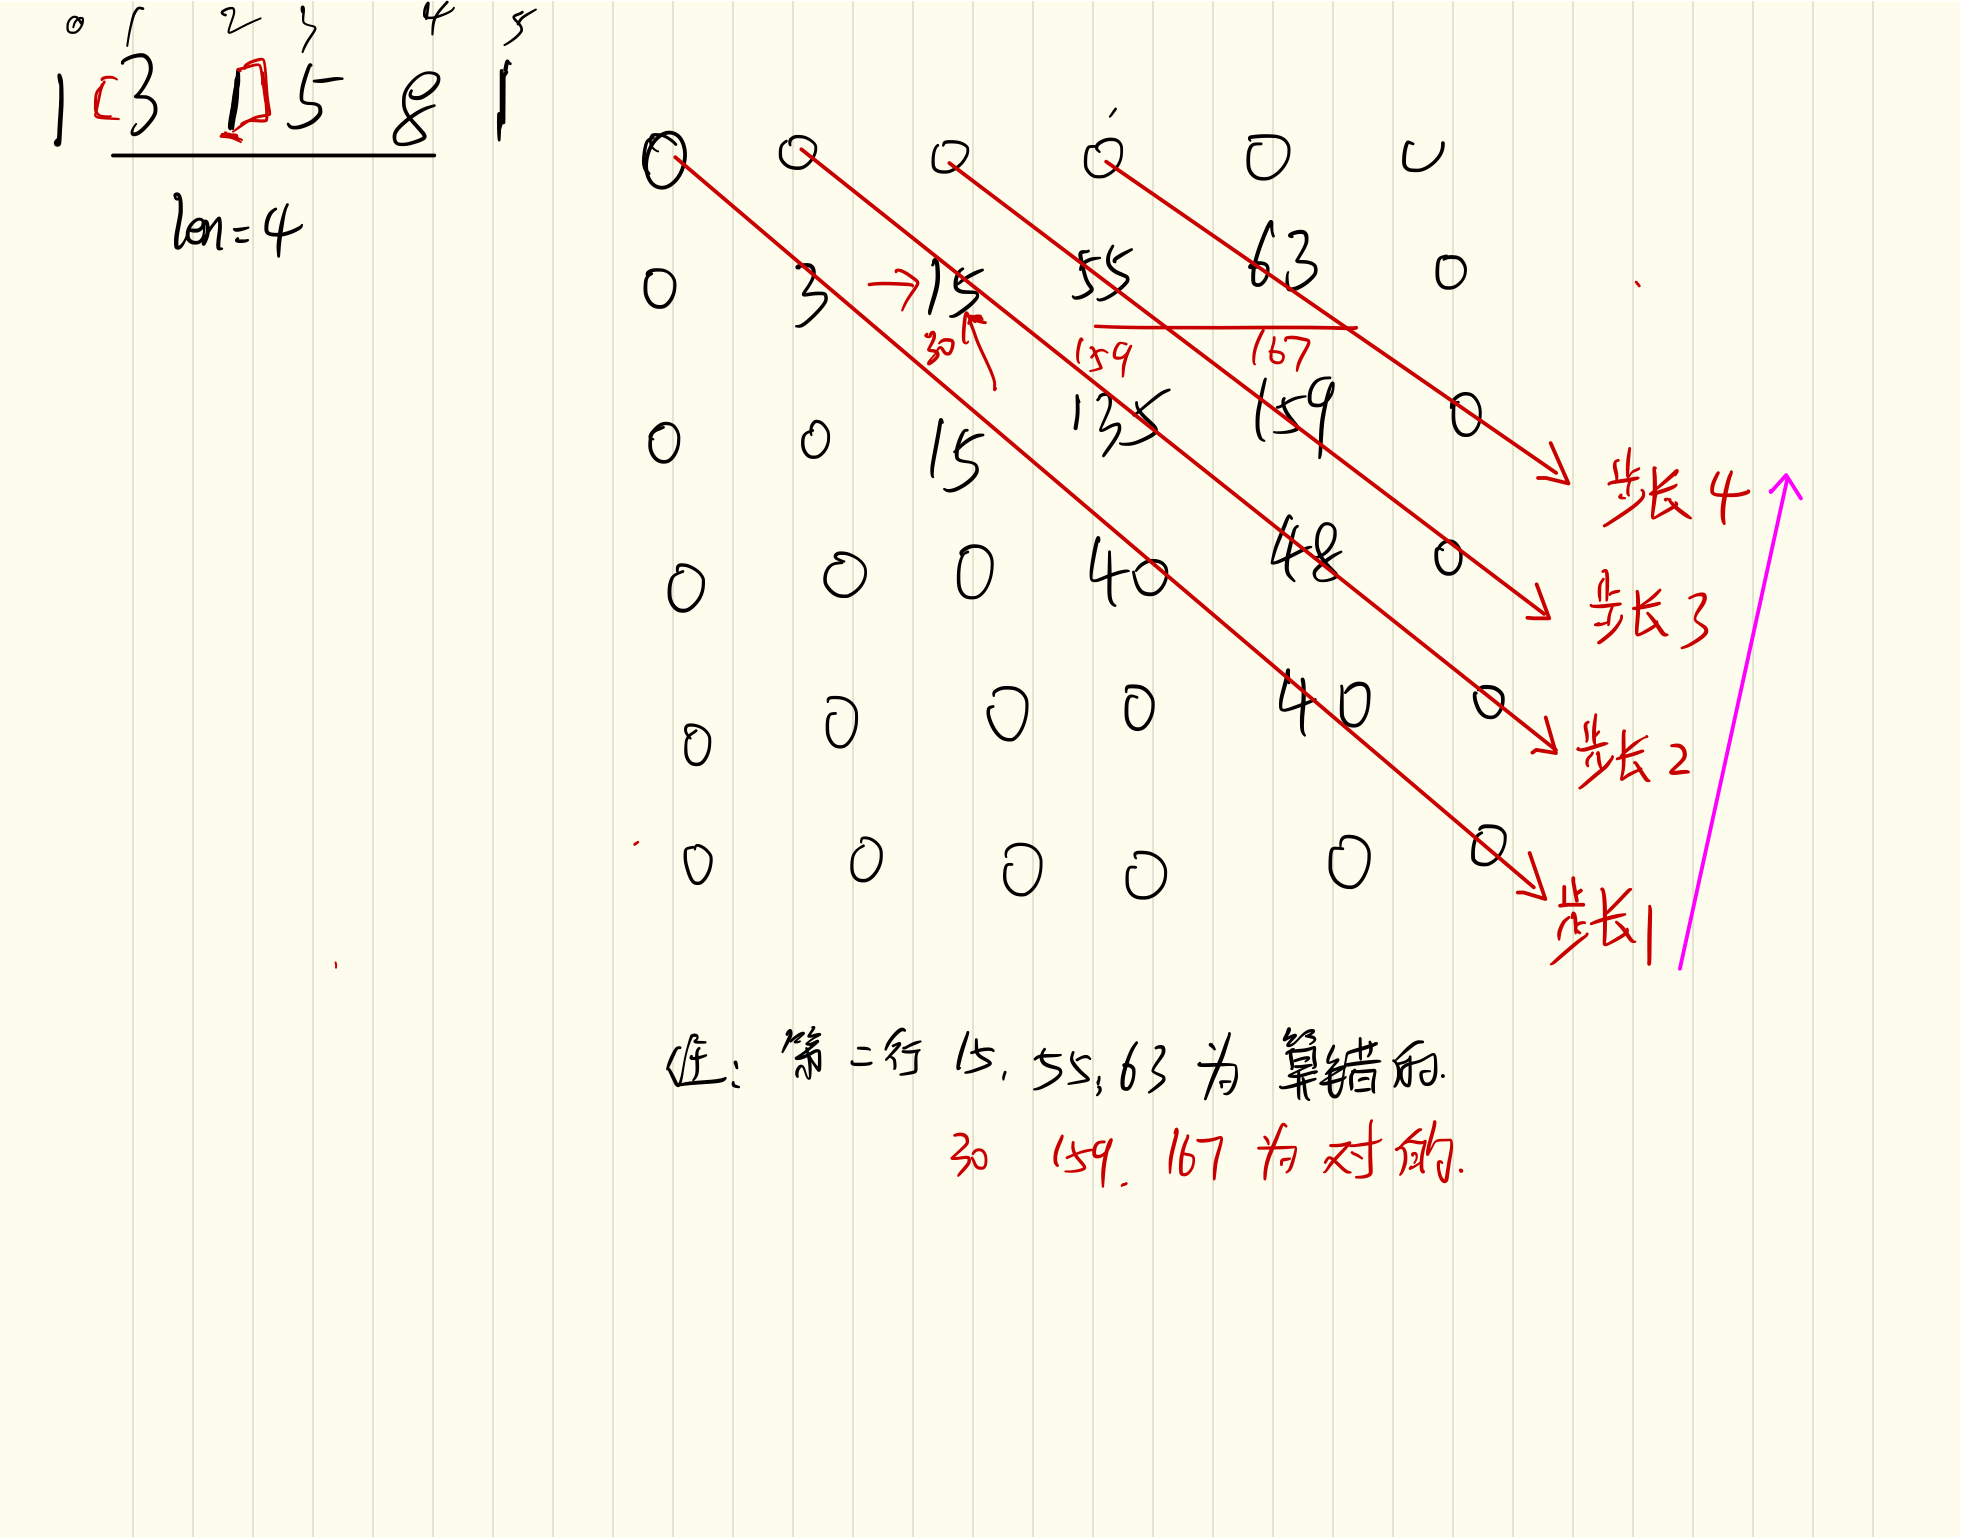 0 1 2 3 4 5
1 [3 1] 5 8 1
len=4
0 0 0 0 0 0
0 3 → 15 55 63 0
30 159 167
0 0 15 135 159 0
步长4
0 0 0 40 48 0
步长3
0 0 0 0 40 0
步长2
0 0 0 0 0 0
步长1
注: 第二行 15, 55, 63 为 算错的.
30 159. 167 为 对的.